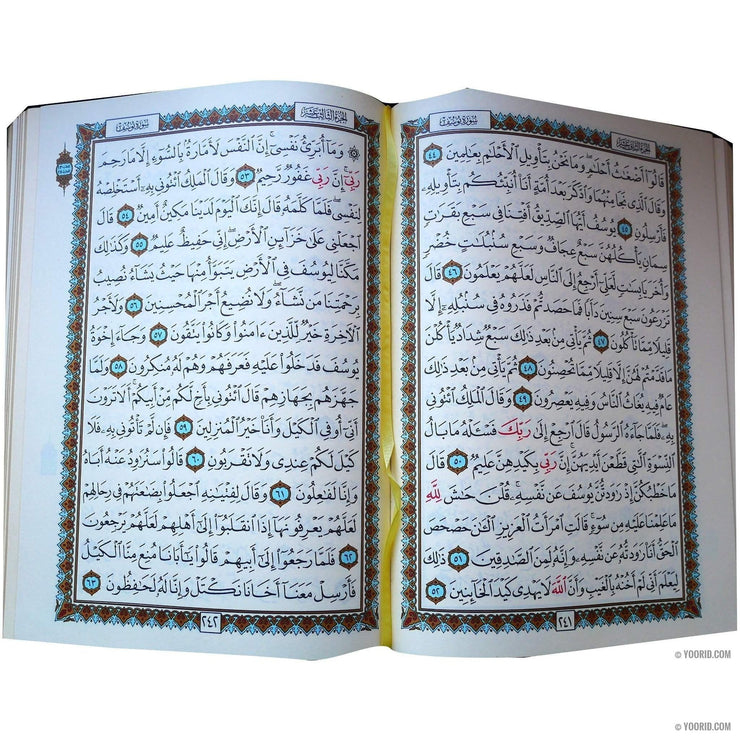 سُورَةُ يُوسُفَ
الجُزْءُ الثَّانِي عَشَرَ
قَالُوٓا۟ أَضْغَـٰثُ أَحْلَـٰمٍ ۖ وَمَا نَحْنُ بِتَأْوِيلِ ٱلْأَحْلَـٰمِ بِعَـٰلِمِينَ ٤٤
وَقَالَ ٱلَّذِى نَجَا مِنْهُمَا وَٱدَّكَرَ بَعْدَ أُمَّةٍ أَنَا۠ أُنَبِّئُكُم بِتَأْوِيلِهِۦ
فَأَرْسِلُونِ ٤٥ يُوسُفُ أَيُّهَا ٱلصِّدِّيقُ أَفْتِنَا فِى سَبْعِ بَقَرَٰتٍ
سِمَانٍ يَأْكُلُهُنَّ سَبْعٌ عِجَافٌ وَسَبْعِ سُنۢبُلَـٰتٍ خُضْرٍ
وَأُخَرَ يَابِسَـٰتٍ لَّعَلِّىٓ أَرْجِعُ إِلَى ٱلنَّاسِ لَعَلَّهُمْ يَعْلَمُونَ ٤٦ قَالَ
تَزْرَعُونَ سَبْعَ سِنِينَ دَأَبًا فَمَا حَصَدتُّمْ فَذَرُوهُ فِى سُنۢبُلِهِۦٓ إِلَّا
قَلِيلًا مِّمَّا تَأْكُلُونَ ٤٧ ثُمَّ يَأْتِى مِنۢ بَعْدِ ذَٰلِكَ سَبْعٌ شِدَادٌ يَأْكُلْنَ
مَا قَدَّمْتُمْ لَهُنَّ إِلَّا قَلِيلًا مِّمَّا تُحْصِنُونَ ٤٨ ثُمَّ يَأْتِى مِنۢ بَعْدِ ذَٰلِكَ
عَامٌ فِيهِ يُغَاثُ ٱلنَّاسُ وَفِيهِ يَعْصِرُونَ ٤٩ وَقَالَ ٱلْمَلِكُ ٱئْتُونِى
بِهِۦ ۖ فَلَمَّا جَآءَهُ ٱلرَّسُولُ قَالَ ٱرْجِعْ إِلَىٰ رَبِّكَ فَسْـَٔلْهُ مَا بَالُ
ٱلنِّسْوَةِ ٱلَّـٰتِى قَطَّعْنَ أَيْدِيَهُنَّ ۚ إِنَّ رَبِّى بِكَيْدِهِنَّ عَلِيمٌ ٥٠ قَالَ
مَا خَطْبُكُنَّ إِذْ رَٰوَدتُّنَّ يُوسُفَ عَن نَّفْسِهِۦ ۚ قُلْنَ حَـٰشَ لِلَّهِ
مَا عَلِمْنَا عَلَيْهِ مِن سُوٓءٍ ۚ قَالَتِ ٱمْرَأَتُ ٱلْعَزِيزِ ٱلْـَٔـٰنَ حَصْحَصَ
ٱلْحَقُّ أَنَا۠ رَٰوَدتُّهُۥ عَن نَّفْسِهِۦ وَإِنَّهُۥ لَمِنَ ٱلصَّـٰدِقِينَ ٥١ ذَٰلِكَ
لِيَعْلَمَ أَنِّى لَمْ أَخُنْهُ بِٱلْغَيْبِ وَأَنَّ ٱللَّهَ لَا يَهْدِى كَيْدَ ٱلْخَآئِنِينَ ٥٢
٢٤١
الجُزْءُ الثَّالِثَ عَشَرَ
سُورَةُ يُوسُفَ
۞ وَمَآ أُبَرِّئُ نَفْسِىٓ ۚ إِنَّ ٱلنَّفْسَ لَأَمَّارَةٌۢ بِٱلسُّوٓءِ إِلَّا مَا رَحِمَ
رَبِّىٓ ۚ إِنَّ رَبِّى غَفُورٌ رَّحِيمٌ ٥٣ وَقَالَ ٱلْمَلِكُ ٱئْتُونِى بِهِۦٓ أَسْتَخْلِصْهُ
لِنَفْسِى ۖ فَلَمَّا كَلَّمَهُۥ قَالَ إِنَّكَ ٱلْيَوْمَ لَدَيْنَا مَكِينٌ أَمِينٌ ٥٤ قَالَ
ٱجْعَلْنِى عَلَىٰ خَزَآئِنِ ٱلْأَرْضِ ۖ إِنِّى حَفِيظٌ عَلِيمٌ ٥٥ وَكَذَٰلِكَ
مَكَّنَّا لِيُوسُفَ فِى ٱلْأَرْضِ يَتَبَوَّأُ مِنْهَا حَيْثُ يَشَآءُ ۚ نُصِيبُ
بِرَحْمَتِنَا مَن نَّشَآءُ ۖ وَلَا نُضِيعُ أَجْرَ ٱلْمُحْسِنِينَ ٥٦ وَلَأَجْرُ
ٱلْـَٔاخِرَةِ خَيْرٌ لِّلَّذِينَ ءَامَنُوا۟ وَكَانُوا۟ يَتَّقُونَ ٥٧ وَجَآءَ إِخْوَةُ
يُوسُفَ فَدَخَلُوا۟ عَلَيْهِ فَعَرَفَهُمْ وَهُمْ لَهُۥ مُنكِرُونَ ٥٨ وَلَمَّا
جَهَّزَهُم بِجَهَازِهِمْ قَالَ ٱئْتُونِى بِأَخٍ لَّكُم مِّنْ أَبِيكُمْ ۚ أَلَا تَرَوْنَ
أَنِّىٓ أُوفِى ٱلْكَيْلَ وَأَنَا۠ خَيْرُ ٱلْمُنزِلِينَ ٥٩ فَإِن لَّمْ تَأْتُونِى بِهِۦ فَلَا
كَيْلَ لَكُمْ عِندِى وَلَا تَقْرَبُونِ ٦٠ قَالُوا۟ سَنُرَٰوِدُ عَنْهُ أَبَاهُ
وَإِنَّا لَفَـٰعِلُونَ ٦١ وَقَالَ لِفِتْيَـٰنِهِ ٱجْعَلُوا۟ بِضَـٰعَتَهُمْ فِى رِحَالِهِمْ
لَعَلَّهُمْ يَعْرِفُونَهَآ إِذَا ٱنقَلَبُوٓا۟ إِلَىٰٓ أَهْلِهِمْ لَعَلَّهُمْ يَرْجِعُونَ
٦٢ فَلَمَّا رَجَعُوٓا۟ إِلَىٰٓ أَبِيهِمْ قَالُوا۟ يَـٰٓأَبَانَا مُنِعَ مِنَّا ٱلْكَيْلُ
فَأَرْسِلْ مَعَنَآ أَخَانَا نَكْتَلْ وَإِنَّا لَهُۥ لَحَـٰفِظُونَ ٦٣
٢٤٢
© YOORID.COM
© YOORID.COM